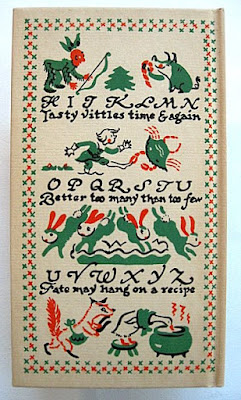 H I J K L M N
Tasty vittles time & again
O P Q R S T U
Better too many than too few
U V W X Y Z
Fate may hang on a recipe